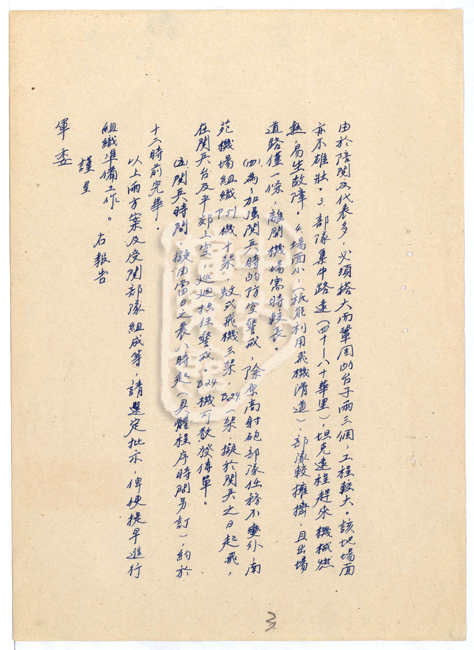 由於陪閱及代表多，必須搭大而鞏固的台子兩三個，工程較大。該地場面
亦不雄壯。3.部隊集中路遠（四十—八十華里），坦克遠程趕來機械太
熱，易生故障。4.場面小（祇能利用飛機滑道），部隊較擁擠，且出場
道路僅一條，離開機場需時較長。
㈣為了加强閱兵時的防空警戒，除原高射砲部隊任務不變外，南
苑機場組織P.51機十架，蚊式飛機三架，B24一架，擬於閱兵之日起飛，
在閱兵台及平郊上空，巡迴担任警戒。B24機可散發傳單。
㈤閱兵時間，擬由當日之晨八時起（具體程序時間另訂），約於
十二時前完畢。
以上兩方案及受閱部隊組成等，請選定批示，俾便提早進行
組織準備工作。 右報告
謹呈
軍委
3